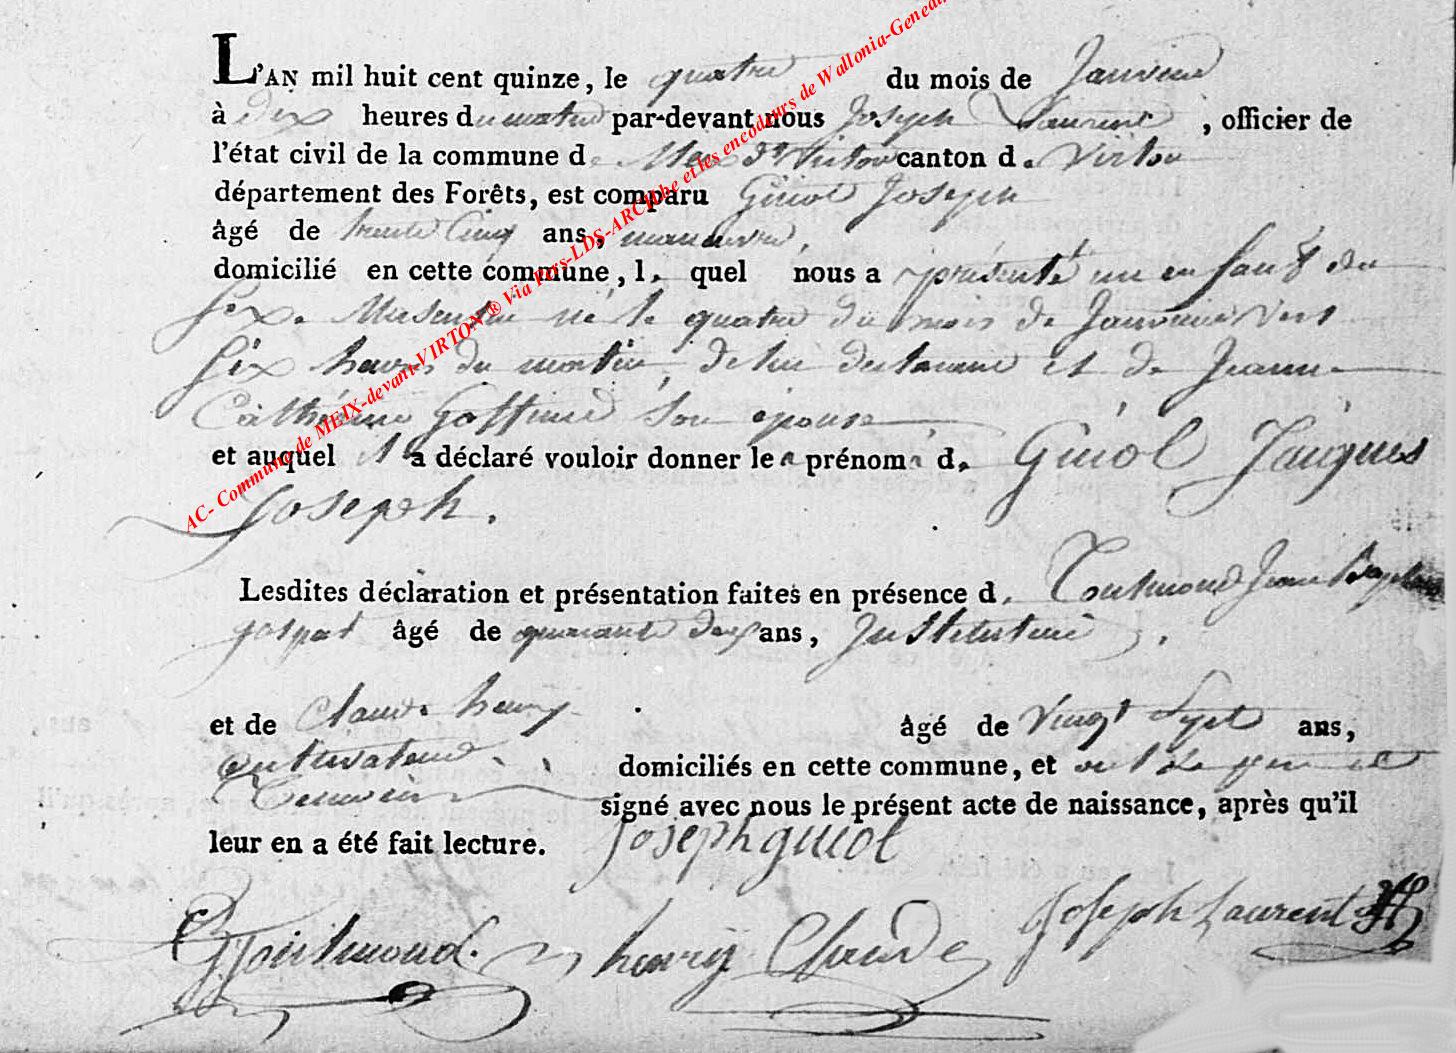 L'AN mil huit cent quinze, le quatre du mois de Janvier
à dix heures du matin par-devant nous Joseph Laurent, officier de
l'état civil de la commune de Meix dt Virton canton de Virton
département des Forêts, est comparu Guiot Joseph
âgé de trente Cinq ans, manœuvre,
domicilié en cette commune, le quel nous a présenté un enfant du
sexe Masculin né le quatre du mois de Janvier vers
six heures du matin, de lui declarant et de Jeanne
Cathérine Goffinet son epouse
et auquel il a déclaré vouloir donner les prénoms de Guiot Jacques
Joseph.
Lesdites déclaration et présentation faites en présence de Toutmond Jean Baptiste
gaspard âgé de quarante deux ans, Instituteur,
et de Claude henry âgé de Vingt Sept ans,
cultivateur domiciliés en cette commune, et ont le pere et
Temoins signé avec nous le présent acte de naissance, après qu'il
leur en a été fait lecture. Joseph guiot
Toutmond. henry Claude Joseph Laurent
AC- Commune de MEIX-devant-VIRTON ® Via Pers-LDS-ARCHbe et les encodeurs de Wallonia-Geneal